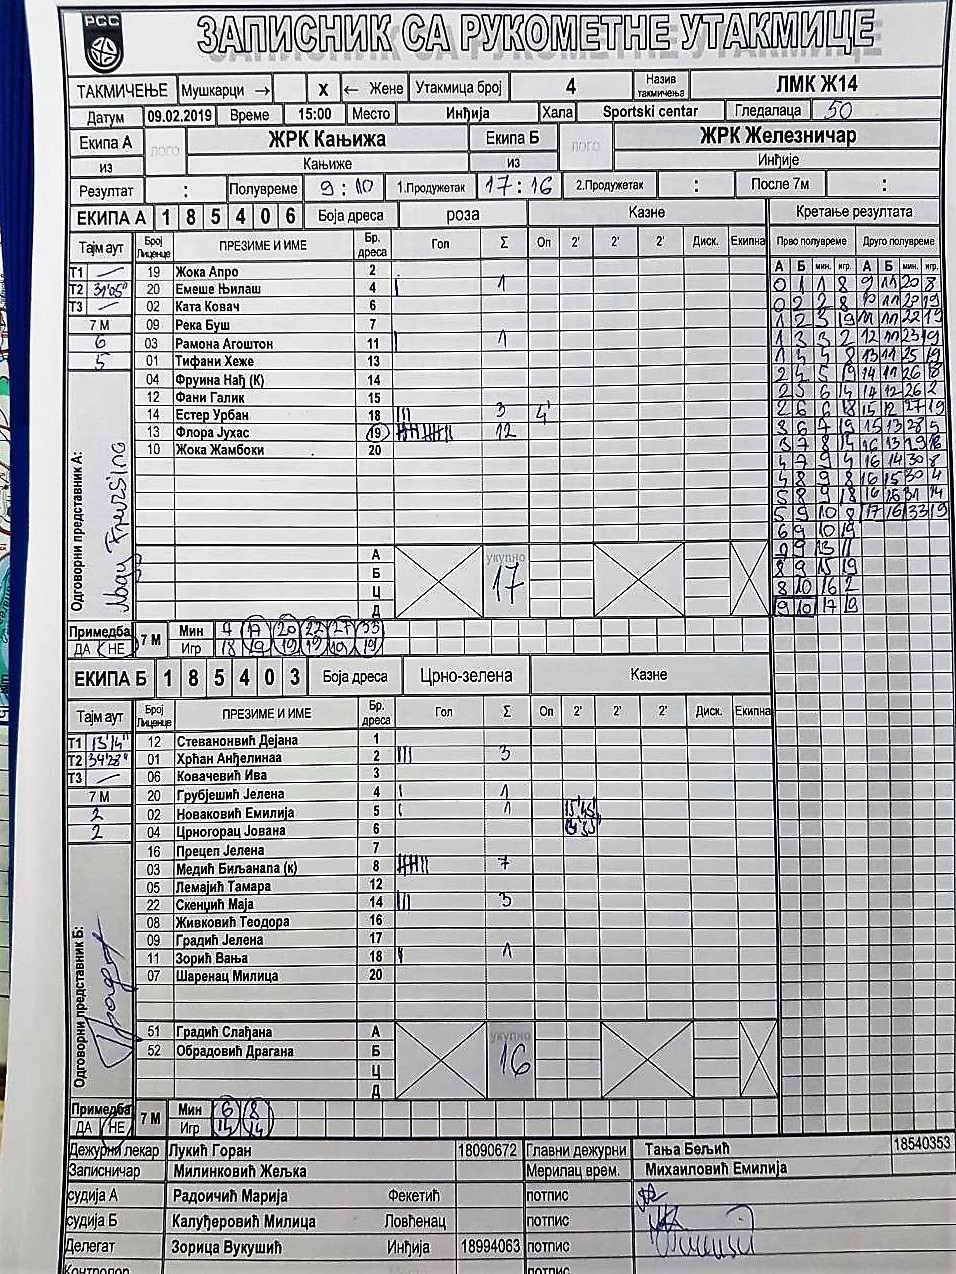 РСС
ЗАПИСНИК СА РУКОМЕТНЕ УТАКМИЦЕ
ТАКМИЧЕЊЕ Мушкарци → X ← Жене Утакмица број 4 Назив такмичења ЛМК Ж14
Датум 09.02.2019 Време 15:00 Место Инђија Хала Sportski centar Гледалаца 50
Екипа А лого ЖРК Кањижа Екипа Б лого ЖРК Железничар
из Кањиже из Инђије
Резултат : Полувреме 9 : 10 1.Продужетак 17 : 16 2.Продужетак : После 7м :
ЕКИПА А 1 8 5 4 0 6 Боја дреса роза Казне Кретање резултата
Тајм аут Број Лиценце ПРЕЗИМЕ И ИМЕ Бр. дреса Гол Σ Оп 2' 2' 2' Диск. Екипна Прво полувреме Друго полувреме
А Б мин. игр. А Б мин. игр.
T1 — 19 Жока Апро 2
T2 31'05" 20 Емеше Њилаш 4 I 1
T3 — 02 Ката Ковач 6
7 М 09 Река Буш 7
6 03 Рамона Агоштон 11 I 1
5 01 Тифани Хеже 13
04 Фруина Нађ (К) 14
12 Фани Галик 15
14 Естер Урбан 18 III 3 4'
13 Флора Јухас 19 12
10 Жока Жамбоки 20
Одговорни представник А:
А
Б
Ц
Д
укупно
17
0 1 1 8 9 11 20 8
0 2 2 8 10 11 20 19
1 2 3 19 11 11 22 19
1 3 3 2 12 11 23 19
1 4 4 8 13 11 25 19
2 4 5 19 14 11 26 18
2 5 6 14 14 12 26 2
2 6 6 18 15 12 27 19
3 6 7 19 15 13 28 5
3 7 8 14 16 13 29 18
4 7 9 4 16 14 30 8
4 8 9 8 16 15 30 4
5 8 9 18 16 16 31 14
5 9 10 8 17 16 33 19
6 9 10 19
9 13 11
8 9 15 19
8 10 16 2
9 10 17 19
Примедба 7 М Мин 7 17 20 22 27 33
ДА НЕ Игр 18 19 19 19 19 19
ЕКИПА Б 1 8 5 4 0 3 Боја дреса Црно-зелена Казне
Тајм аут Број Лиценце ПРЕЗИМЕ И ИМЕ Бр. дреса Гол Σ Оп 2' 2' 2' Диск. Екипна
T1 13'14" 12 Стеванонвић Дејана 1
T2 34'28" 01 Хрћан Анђелинаа 2 III 3
T3 — 06 Ковачевић Ива 3
7 М 20 Грубјешић Јелена 4 I 1
2 02 Новаковић Емилија 5 I 1 15'45"
2 04 Црногорац Јована 6
16 Прецеп Јелена 7
03 Медић Биљанапа (к) 8 7
05 Лемајић Тамара 12
22 Скенџић Маја 14 III 3
08 Живковић Теодора 16
09 Градић Јелена 17
11 Зорић Вања 18 I 1
07 Шаренац Милица 20
Одговорни представник Б:
51 Градић Слађана А
52 Обрадовић Драгана Б
Ц
Д
укупно
16
Примедба 7 М Мин 6 8
ДА НЕ Игр 14 14
Дежурни лекар Лукић Горан 18090672 Главни дежурни Тања Бељић 18540353
Записничар Милинковић Жељка Мерилац врем. Михаиловић Емилија
судија А Радоичић Марија Фекетић потпис
судија Б Калуђеровић Милица Ловћенац потпис
Делегат Зорица Вукушић Инђија 18994063 потпис
Контролор потпис